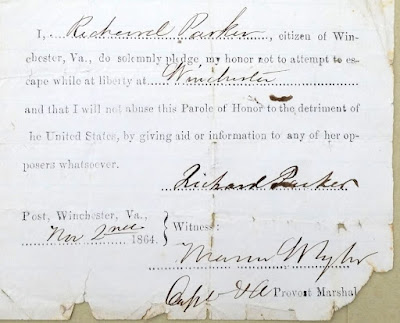 I, Richard Parker, citizen of Win-
chester, Va., do solemnly pledge my honor not to attempt to es-
cape while at liberty at Winchester
and that I will not abuse this Parole of Honor to the detriment of
he United States, by giving aid or information to any of her op-
posers whatsoever.
Richard Parker
Post, Winchester, Va.,
Nov 2nd 1864.
Witness:
Capt & A Provost Marshal